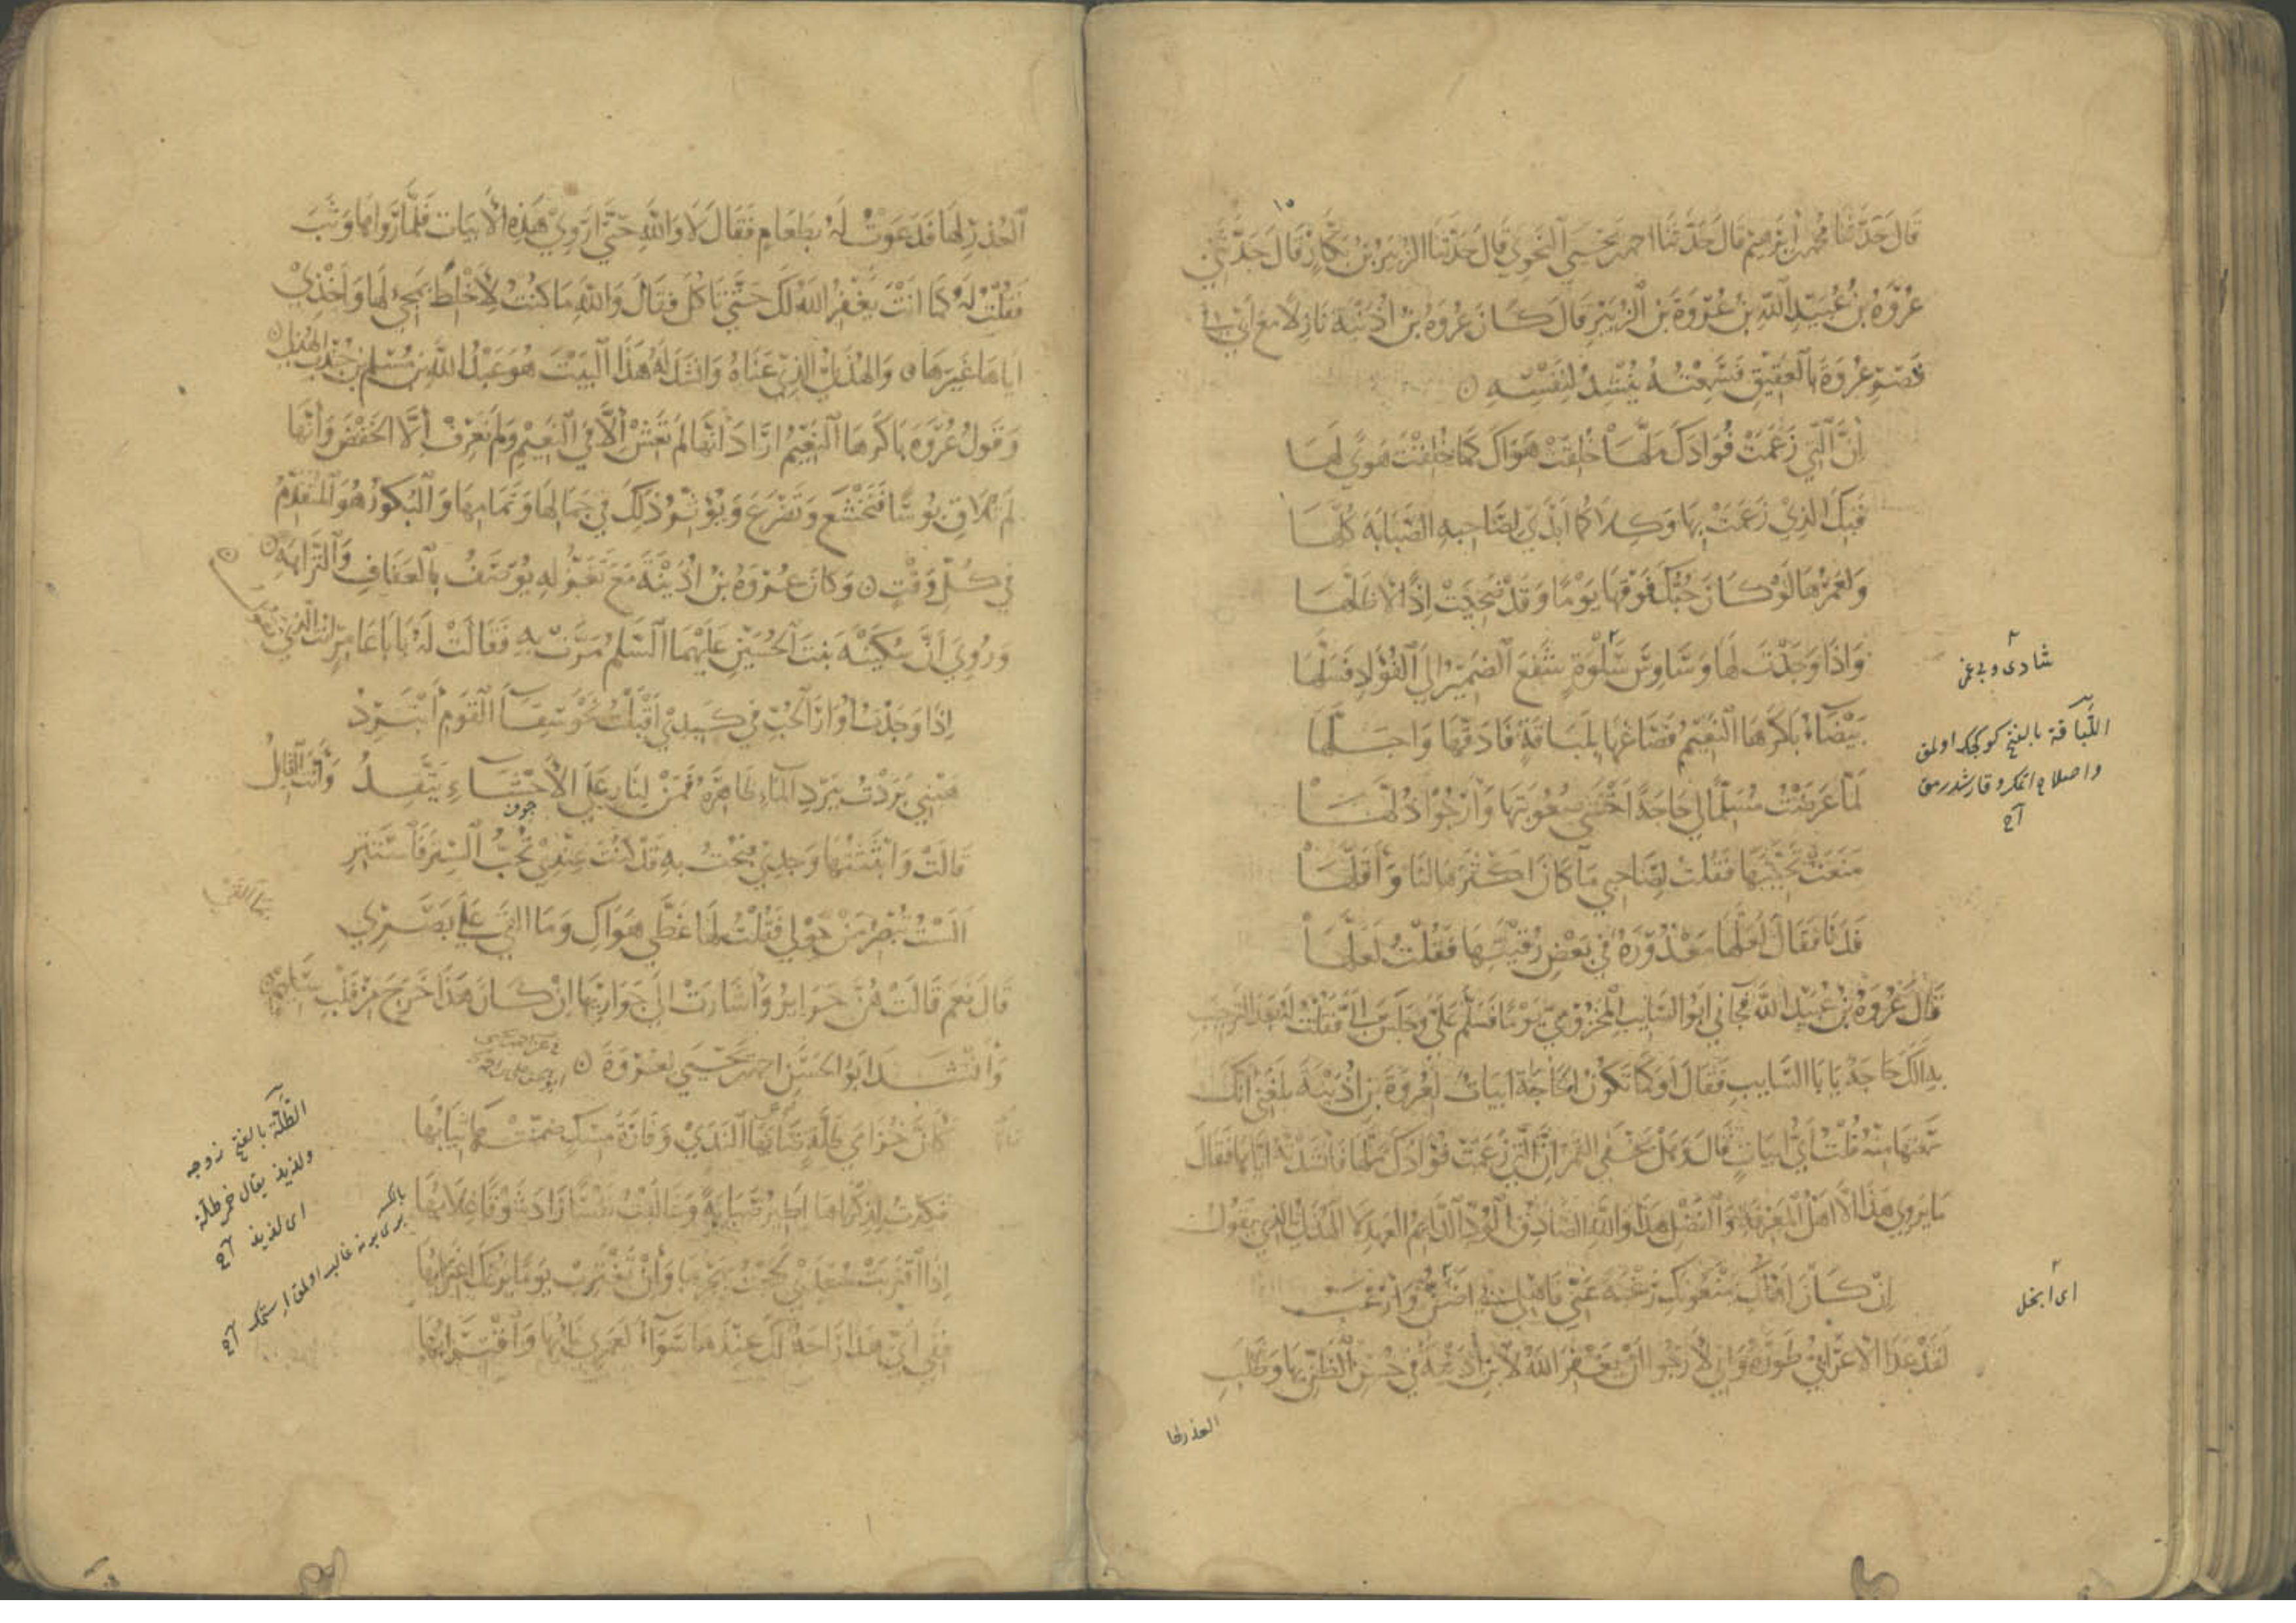 قَالَ حَدَّثَنَا محمد بن ابرهيم قَالَ حَدَّثَنَا احمد بن يَحْيَى النَّحْوِي قَالَ حَدَّثَنَا الزُّبَيْرُ بْنُ بَكَّارٍ قَالَ حَدَّثَنِي
عُرْوَةُ بْنُ عُبَيْدِ اللهِ بْنِ عُرْوَةَ بْنِ الزُّبَيْرِ قَالَ كَانَ عُرْوَةُ بْنُ اُذَيْنَةَ نَازِلًا مَعَ اَبِي في
قَصْرِ عُرْوَةَ بِالْعَقِيقِ فَسَمِعْتُهُ يُنْشِدُ لِنَفْسِهِ
اِنَّ الَّتِي زَعَمَتْ فُوَادَكَ مَلَّهَا خُلِقَتْ هَوَاكَ كَمَا خُلِقْتَ هَوًى لَهَا
فَبِكَ الَّذِي زَعَمَتْ بِهَا وَكِلَاكُمَا اَبْدَى لِصَاحِبِهِ الصَّبَابَةَ كُلَّهَا
وَلَعَمْرُهَا لَوْ كَانَ حُبُّكَ فَوْقَهَا يَوْمًا وَقَدْ ضَحِيَتْ اِذًا لَاَظَلَّهَا
وَاِذَا وَجَدْتَ لَهَا وَسَاوِسَ سَلْوَةٍ شَفَعَ الضَّمِيرُ اِلَى الْفُؤَادِ فَسَلَّهَا
بَيْضَاءُ بَاكَرَهَا النَّعِيمُ فَصَاغَهَا بِلَبَاقَةٍ فَاَدَقَّهَا وَاَجَلَّهَا
لَمَّا عَرَضْتُ مُسَلِّمًا لِي حَاجَةٌ اَخْشَى صُعُوبَتَهَا وَاَرْجُوا ذُلَّهَا
مَنَعَتْ تَحِيَّتَهَا فَقُلْتُ لِصَاحِبِي مَا كَانَ اَكْثَرَهَا لَنَا وَاَقَلَّهَا
فَدَنَا فَقَالَ لَعَلَّهَا مَعْذُورَةٌ فِي بَعْضِ رِقْبَتِهَا فَقُلْتُ لَعَلَّهَا
قَالَ عُرْوَةُ بْنُ عُبَيْدِ اللهِ فَجَاءَنِي اَبُو السَّايِبِ الْمَخْزُومِيُّ يَوْمًا فَسَلَّمَ عَلَيَّ وَجَلَسَ اِلَيَّ فَقُلْتُ لَهُ بَعْدَ التَّرْحِيبِ
بِهِ اَلَكَ حَاجَةٌ يَا بَا السَّايِبِ فَقَالَ اَوَ كَمَا تَكُونُ الْحَاجَةُ اَبْيَاتٌ لِعُرْوَةَ بْنِ اُذَيْنَةَ بَلَغَنِي اَنَّكَ
سَمِعْتَهَا مِنْهُ قُلْتُ اَيُّ اَبْيَاتٍ قَالَ وَهَلْ يَخْفَى الْقَمَرُ اِنَّ الَّتِي زَعَمَتْ فُوَادَكَ مَلَّهَا فَاَنْشَدْتُهُ اِيَّاهَا فَقَالَ
مَا يَرْوِي هَذَا اِلَّا اَهْلُ الْمَعْرِفَةِ وَالْفَضْلِ هَذَا وَاللهِ الصَّادِقُ الْوُدِّ الدَّايِمُ الْعَهْدِ لَا الْهُذَلِيُّ الَّذِي يَقُولُ
اِنْ كَانَ اَهْلُكِ يَمْنَعُونَكِ رَغْبَةً عَنِّي فَاَهْلِي بِي اَضَنُّ وَاَرْغَبُ
لَقَدْ عَدَا الْاَعْرَابِيُّ طَوْرَهُ وَاِنِّي لَاَرْجُوا اَنْ يَغْفِرَ اللهُ لِابْنِ اُذَيْنَةَ فِي حُسْنِ الظَّنِّ بِهَا وَطَلَبِ
العذر لها
شادى وبى غمى
اللَّبَاقة بالفتح كوكچك اولمق
واصلاح اتمك وقارشدرمق
اى ابخل
الْعُذْرِ لَهَا فَدَعَوْتُ لَهُ بِطَعَامٍ فَقَالَ لَا وَاللهِ حَتَّى اَرْوِيَ هَذِهِ الْاَبْيَاتَ فَلَمَّا رَوَاهَا وَثَبَ
فَقُلْتُ لَهُ كَمَا اَنْتَ يَغْفِرُ اللهُ لَكَ حَتَّى تَاكُلَ فَقَالَ وَاللهِ مَا كُنْتُ لِاَخْلِطَ بِمَحَبَّتِي لَهَا وَاَخْذِي
اِيَّاهَا غَيْرَهَا وَالْهُذَلِيُّ الَّذِي عَنَاهُ وَاَنْشَدَ لَهُ هَذَا الْبَيْتَ هُوَ عَبْدُ اللهِ بْنُ مُسْلِمِ بْنِ جُنْدُبٍ الْهُذَلِيُّ
وَقَوْلُ عُرْوَةَ بَاكَرَهَا النَّعِيمُ اَرَادَ اَنَّهَا لَمْ تَعِشْ اِلَّا فِي النَّعِيمِ وَلَمْ تَعْرِفْ اِلَّا الْخَفْضَ وَاَنَّهَا
لَمْ تُلَاقِ بُوسًا فَتَخْشَعَ وَتَضْرَعَ وَيُؤَثِّرُ ذَلِكَ فِي جَمَالِهَا وَتَمَامِهَا وَالْبُكُورُ هُوَ الْمُتَقَدِّمُ
فِي كُلِّ وَقْتٍ وَكَانَ عُرْوَةُ بْنُ اُذَيْنَةَ مَعَ تَغَزُّلِهِ يُوصَفُ بِالْعَفَافِ وَالنَّزَاهَةِ
وَرُوِيَ اَنَّ سُكَيْنَةَ بِنْتَ الْحُسَيْنِ عَلَيْهِمَا السَّلَمُ مَرَّتْ بِهِ فَقَالَتْ لَهُ يَا بَا عَامِرٍ اَنْتَ الَّذِي تَقُولُ
اِذَا وَجَدْتُ اُوَارَ الْحُبِّ فِي كَبِدِي اَقْبَلْتُ نَحْوَ سِقَاءِ الْقَوْمِ اَبْتَرِدُ
هَبْنِي بَرَدْتُ بِبَرْدِ الْمَاءِ ظَاهِرَهُ فَمَنْ لِنَارٍ عَلَى الْاَحْشَاءِ يَتَّقِدُ وَاَنْتَ الْقَايِلُ
قَالَتْ وَاَبْثَثْتُهَا وَجْدِي فَبُحْتُ بِهِ قَدْ كُنْتَ عِنْدِي تُحِبُّ السِّتْرَ فَاسْتَتِرِ
اَلَسْتَ تُبْصِرُ مَنْ حَوْلِي فَقُلْتُ لَهَا غَطَّى هَوَاكِ وَمَا اَلْقَى عَلَى بَصَرِي
قَالَ نَعَمْ قَالَتْ هُنَّ حَرَايِرُ وَاَشَارَتْ اِلَى جَوَارِيهَا اِنْ كَانَ هَذَا خَرَجَ مِنْ قَلْبٍ سَلِيمٍ
وَاَنْشَدَ اَبُو الْحَسَنِ احمد بن يَحْيَى لِعُرْوَةَ
كَاَنَّ خُزَامَى طَلَّةٍ صَابَهَا النَّدَى وَفَارَةَ مِسْكٍ ضُمِّنَتْهَا ثِيَابُهَا
فَكِدْتُ لِذِكْرَاهَا اَطِيرُ صَبَابَةً وَغَالَبْتُ نَفْسًا زَادَ شَوْقًا غِلَابُهَا
اِذَا اقْتَرَبَتْ سُعْدَى لَجِجْتَ بِهَجْرِهَا وَاِنْ تَغْتَرِبْ يَوْمًا يَرُعْكَ اغْتِرَابُهَا
فَفِي اَيِّ هَذَا رَاحَةٌ لَكَ عِنْدَهَا سَوَاءٌ لَعَمْرِي نَاْيُهَا وَاقْتِرَابُهَا
الطَلَّة بالفتح زوجه
ولذيذ يقال خمر طلّة
اى لذيذ
برى برينه غالب اولمق استمك